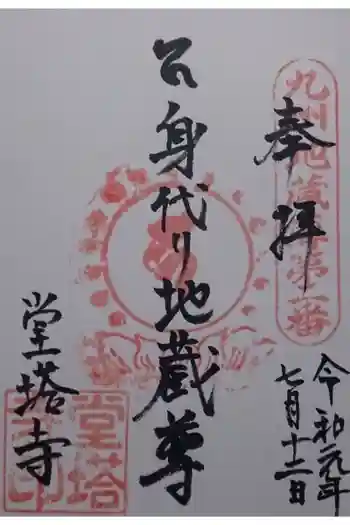 奉拝
九州地蔵尊第二番
身代り地蔵尊
令和元年
七月十二日
堂塔寺
堂塔
寺印